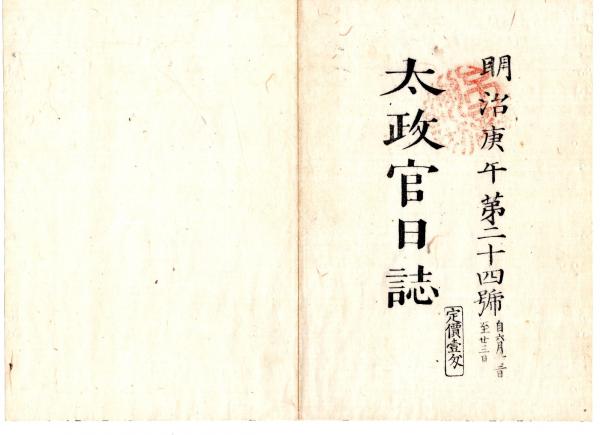 明治庚午第二十四號
自六月十三日
至廿三日
太政官日誌
定價壹匁